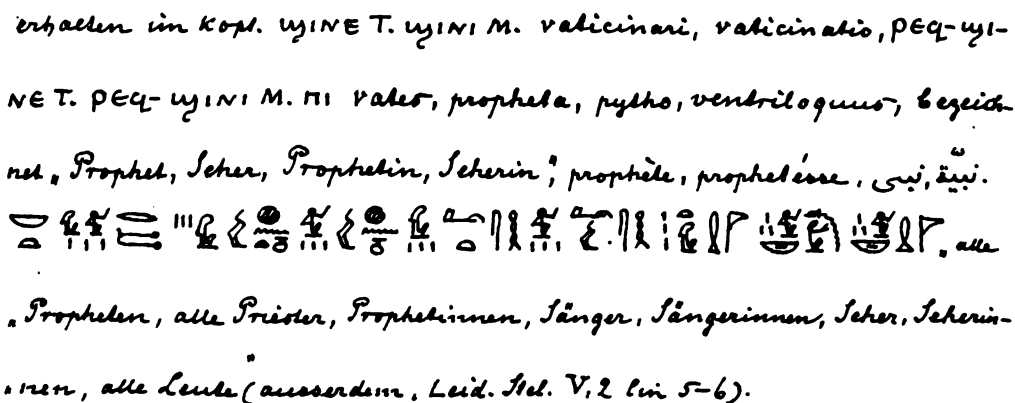 erhalten im kopt. ϣⲓⲛⲉ T. ϣⲓⲛⲓ M. vaticinari, vaticinatio, ⲣⲉϥ-ϣⲓ-
ⲛⲉ T. ⲣⲉϥ-ϣⲓⲛⲓ M. ⲡⲓ vates, propheta, pytho, ventriloquus, bezeich-
net „Prophet, Seher, Prophetin, Seherin“, prophète, prophétesse, نبى, نبيّة.
„alle
„Propheten, alle Priester, Prophetinnen, Sänger, Sängerinnen, Seher, Seherin-
„nen, alle Leute“ (ausserdem, Leid. Stel. V, 2 lin 5–6).